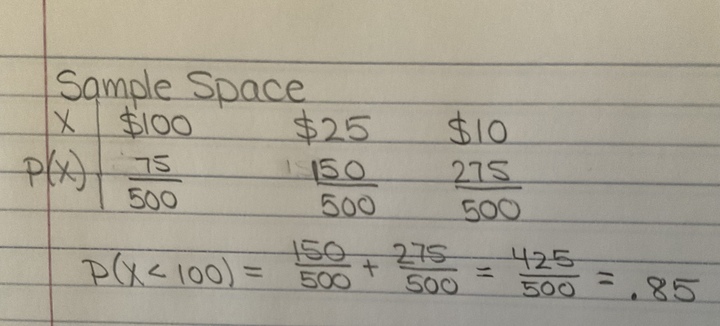 Sample Space
X | $100 $25 $10
P(X) | 75/500 150/500 275/500
P(X < 100) = 150/500 + 275/500 = 425/500 = .85